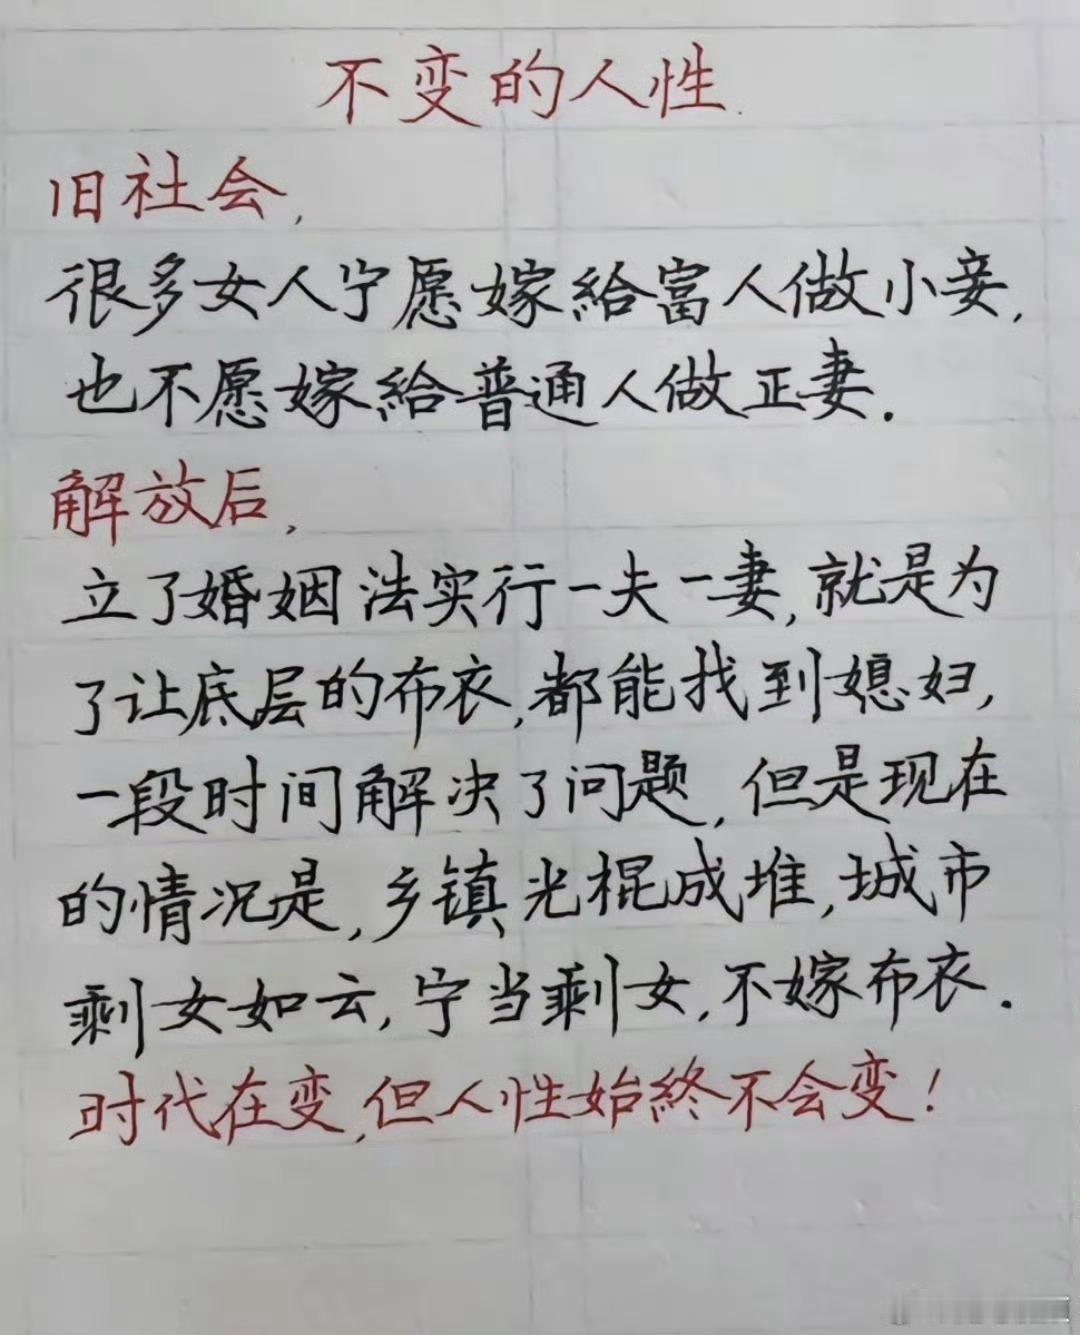 不变的人性
旧社会,
很多女人宁愿嫁給富人做小妾,
也不愿嫁給普通人做正妻.
解放后,
立了婚姻法实行一夫一妻,就是为
了让底层的布衣,都能找到媳妇,
一段时间解决了问题,但是现在
的情况是,乡镇光棍成堆,城市
剩女如云,宁当剩女,不嫁布衣.
时代在变,但人性始終不会变!